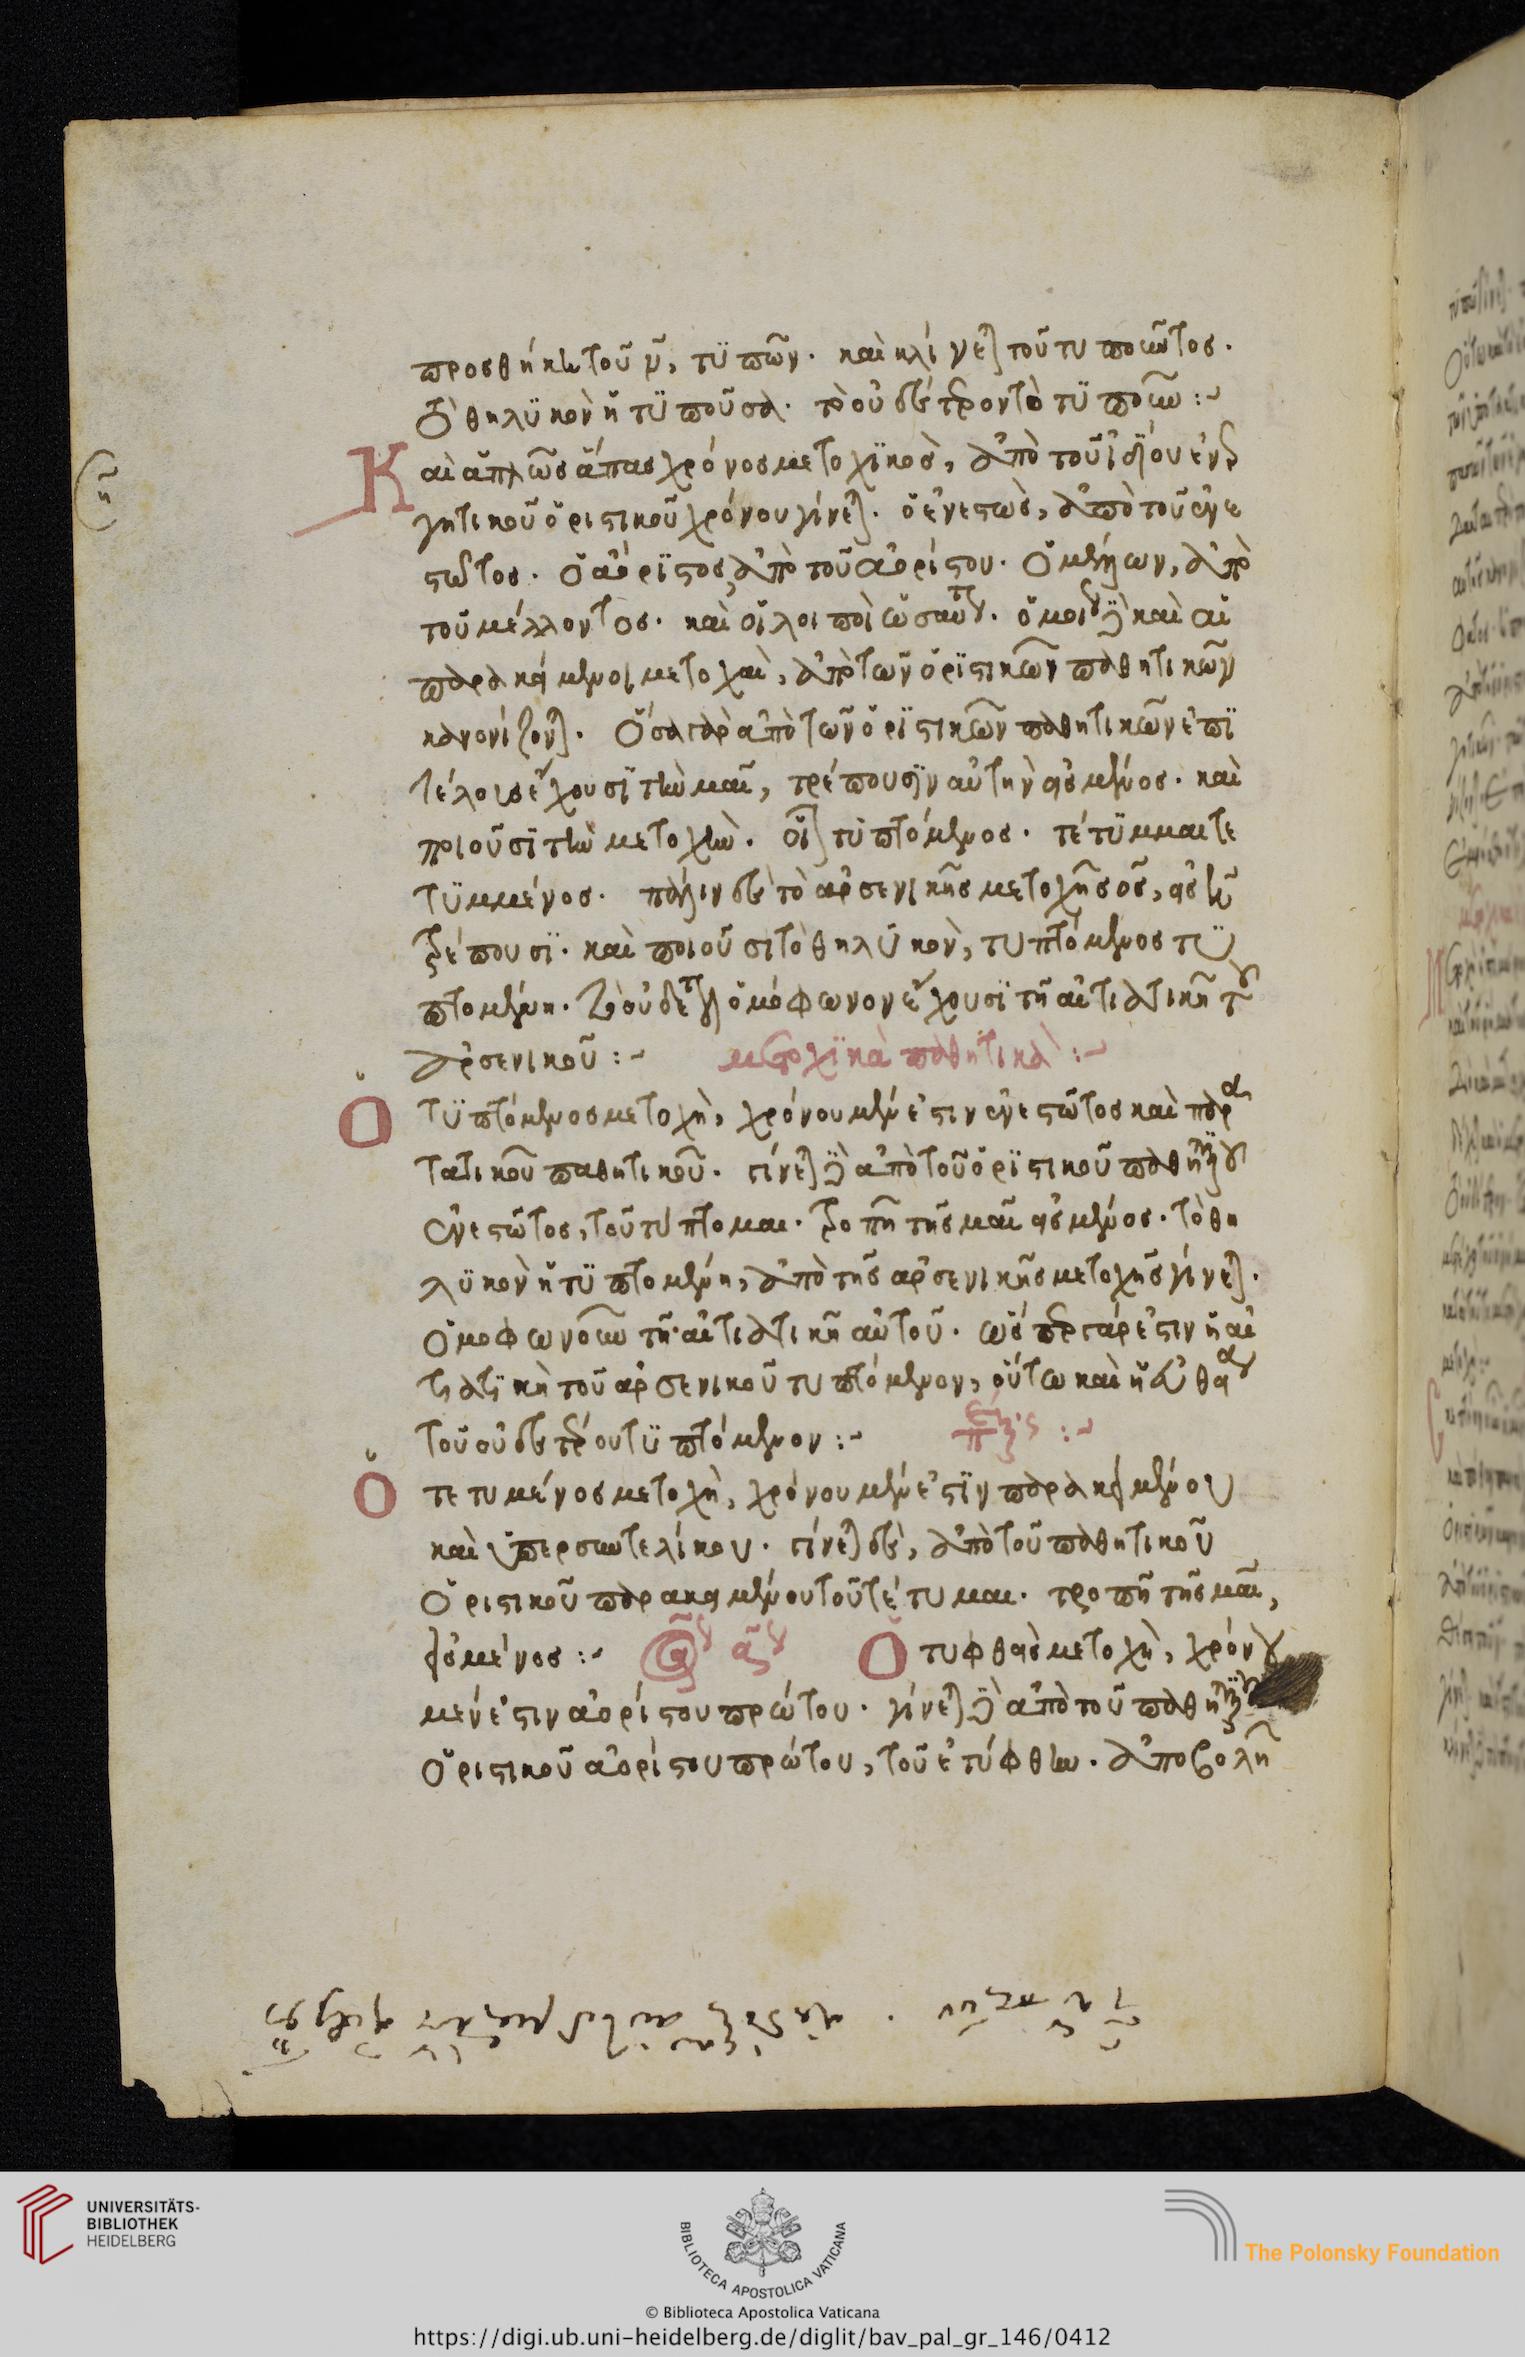 προσθήκη τοῦ ν̄, τϋπῶν. καὶ κλίνεται τοῦ τυποῦντος.
Τὸ θηλϋκὸν ἡ τϋποῦσα. τὸ οὐδέτερον τὸ τϋποῦν :~
Καὶ ἁπλῶς ἅπας χρόνος μετοχϊκὸς, ἀπὸ τοῦ ἰδίου ἐνερ
γητικοῦ ὁριστικοῦ χρόνου γίνεται. ὁ ἐνεστὼς, ἀπὸ τοῦ ἐνε
στῶτος. ὁ ἀόρϊστος, ἀπὸ τοῦ ἀορίστου. ὁ μέλλων, ἀπὸ
τοῦ μέλλοντος. καὶ οἱ λοιποὶ ὡσαύτως. ὁμοίως δὲ καὶ αἱ
παρακείμεναι μετοχαὶ, ἀπὸ τῶν ὁρϊστικῶν παθητικῶν
κανονίζονται. Ὅσα γὰρ ἀπὸ τῶν ὁρϊστικῶν παθητικῶν ἐπϊ
τέλους ἔχουσϊ τὴν μαι, τρέπουσϊν αὐτὴν εἰς μένος. καὶ
ποιοῦσϊ τὴν μετοχὴν. οἷον τϋπτόμενος. τέτϋμμαι τε
τϋμμένος. πάλιν δὲ τὸ ἀρσενικῆς μετοχῆς ος, εἰς η
τρέπουσϊ. καὶ ποιοῦσι τὸ θηλϋκὸν, τυπτόμενος τϋ
πτομένη. τὸ οὐδέτερον ὁμόφωνον ἔχουσϊ τῇ αἰτιατικῇ τοῦ
ἀρσενικοῦ :~ μετοχϊκὰ παθητικὰ :~
Ὁ τϋπτόμενος μετοχὴ, χρόνου μέν ἐστιν ἐνεστῶτος καὶ παρα
τατικοῦ παθητικοῦ. γίνεται δὲ ἀπὸ τοῦ ὁρϊστικοῦ παθητικοῦ
ἐνεστῶτος, τοῦ τύπτομαι. τροπῇ τῆς μαι εἰς μένος. τὸ θη
λϋκὸν ἡ τϋπτομένη, ἀπὸ τῆς ἀρσενικῆς μετοχῆς γίνεται.
ὁμοφωνοῦν τῇ αἰτιατικῇ αὐτοῦ. ὥσπερ γάρ ἐστιν ἡ αἰ
τιατϊκὴ τοῦ ἀρσενικοῦ τυπτόμενον, οὕτω καὶ ἡ εὐθεῖα
τοῦ οὐδετέρου τϋπτόμενον :~
Ὁ τετυμένος μετοχὴ, χρόνου μέν ἐστϊν παρακειμένου
καὶ ὑπερσυντελίκου. γίνεται δὲ, ἀπὸ τοῦ παθητικοῦ
ὁριστικοῦ παρακειμένου τοῦ τέτυμαι. τροπῇ τῆς μαι,
εἰς μένος :~ Ὁ τυφθεὶς μετοχὴ, χρόνου
μέν ἐστιν ἀορίστου πρώτου. γίνεται δὲ ἀπὸ τοῦ παθητικοῦ
ὁριστικοῦ ἀορίστου πρώτου, τοῦ ἐτύφθην. ἀποβολῇ
UNIVERSITÄTS-
BIBLIOTHEK
HEIDELBERG
BIBLIOTECA APOSTOLICA VATICANA
The Polonsky Foundation
© Biblioteca Apostolica Vaticana
https://digi.ub.uni-heidelberg.de/diglit/bav_pal_gr_146/0412